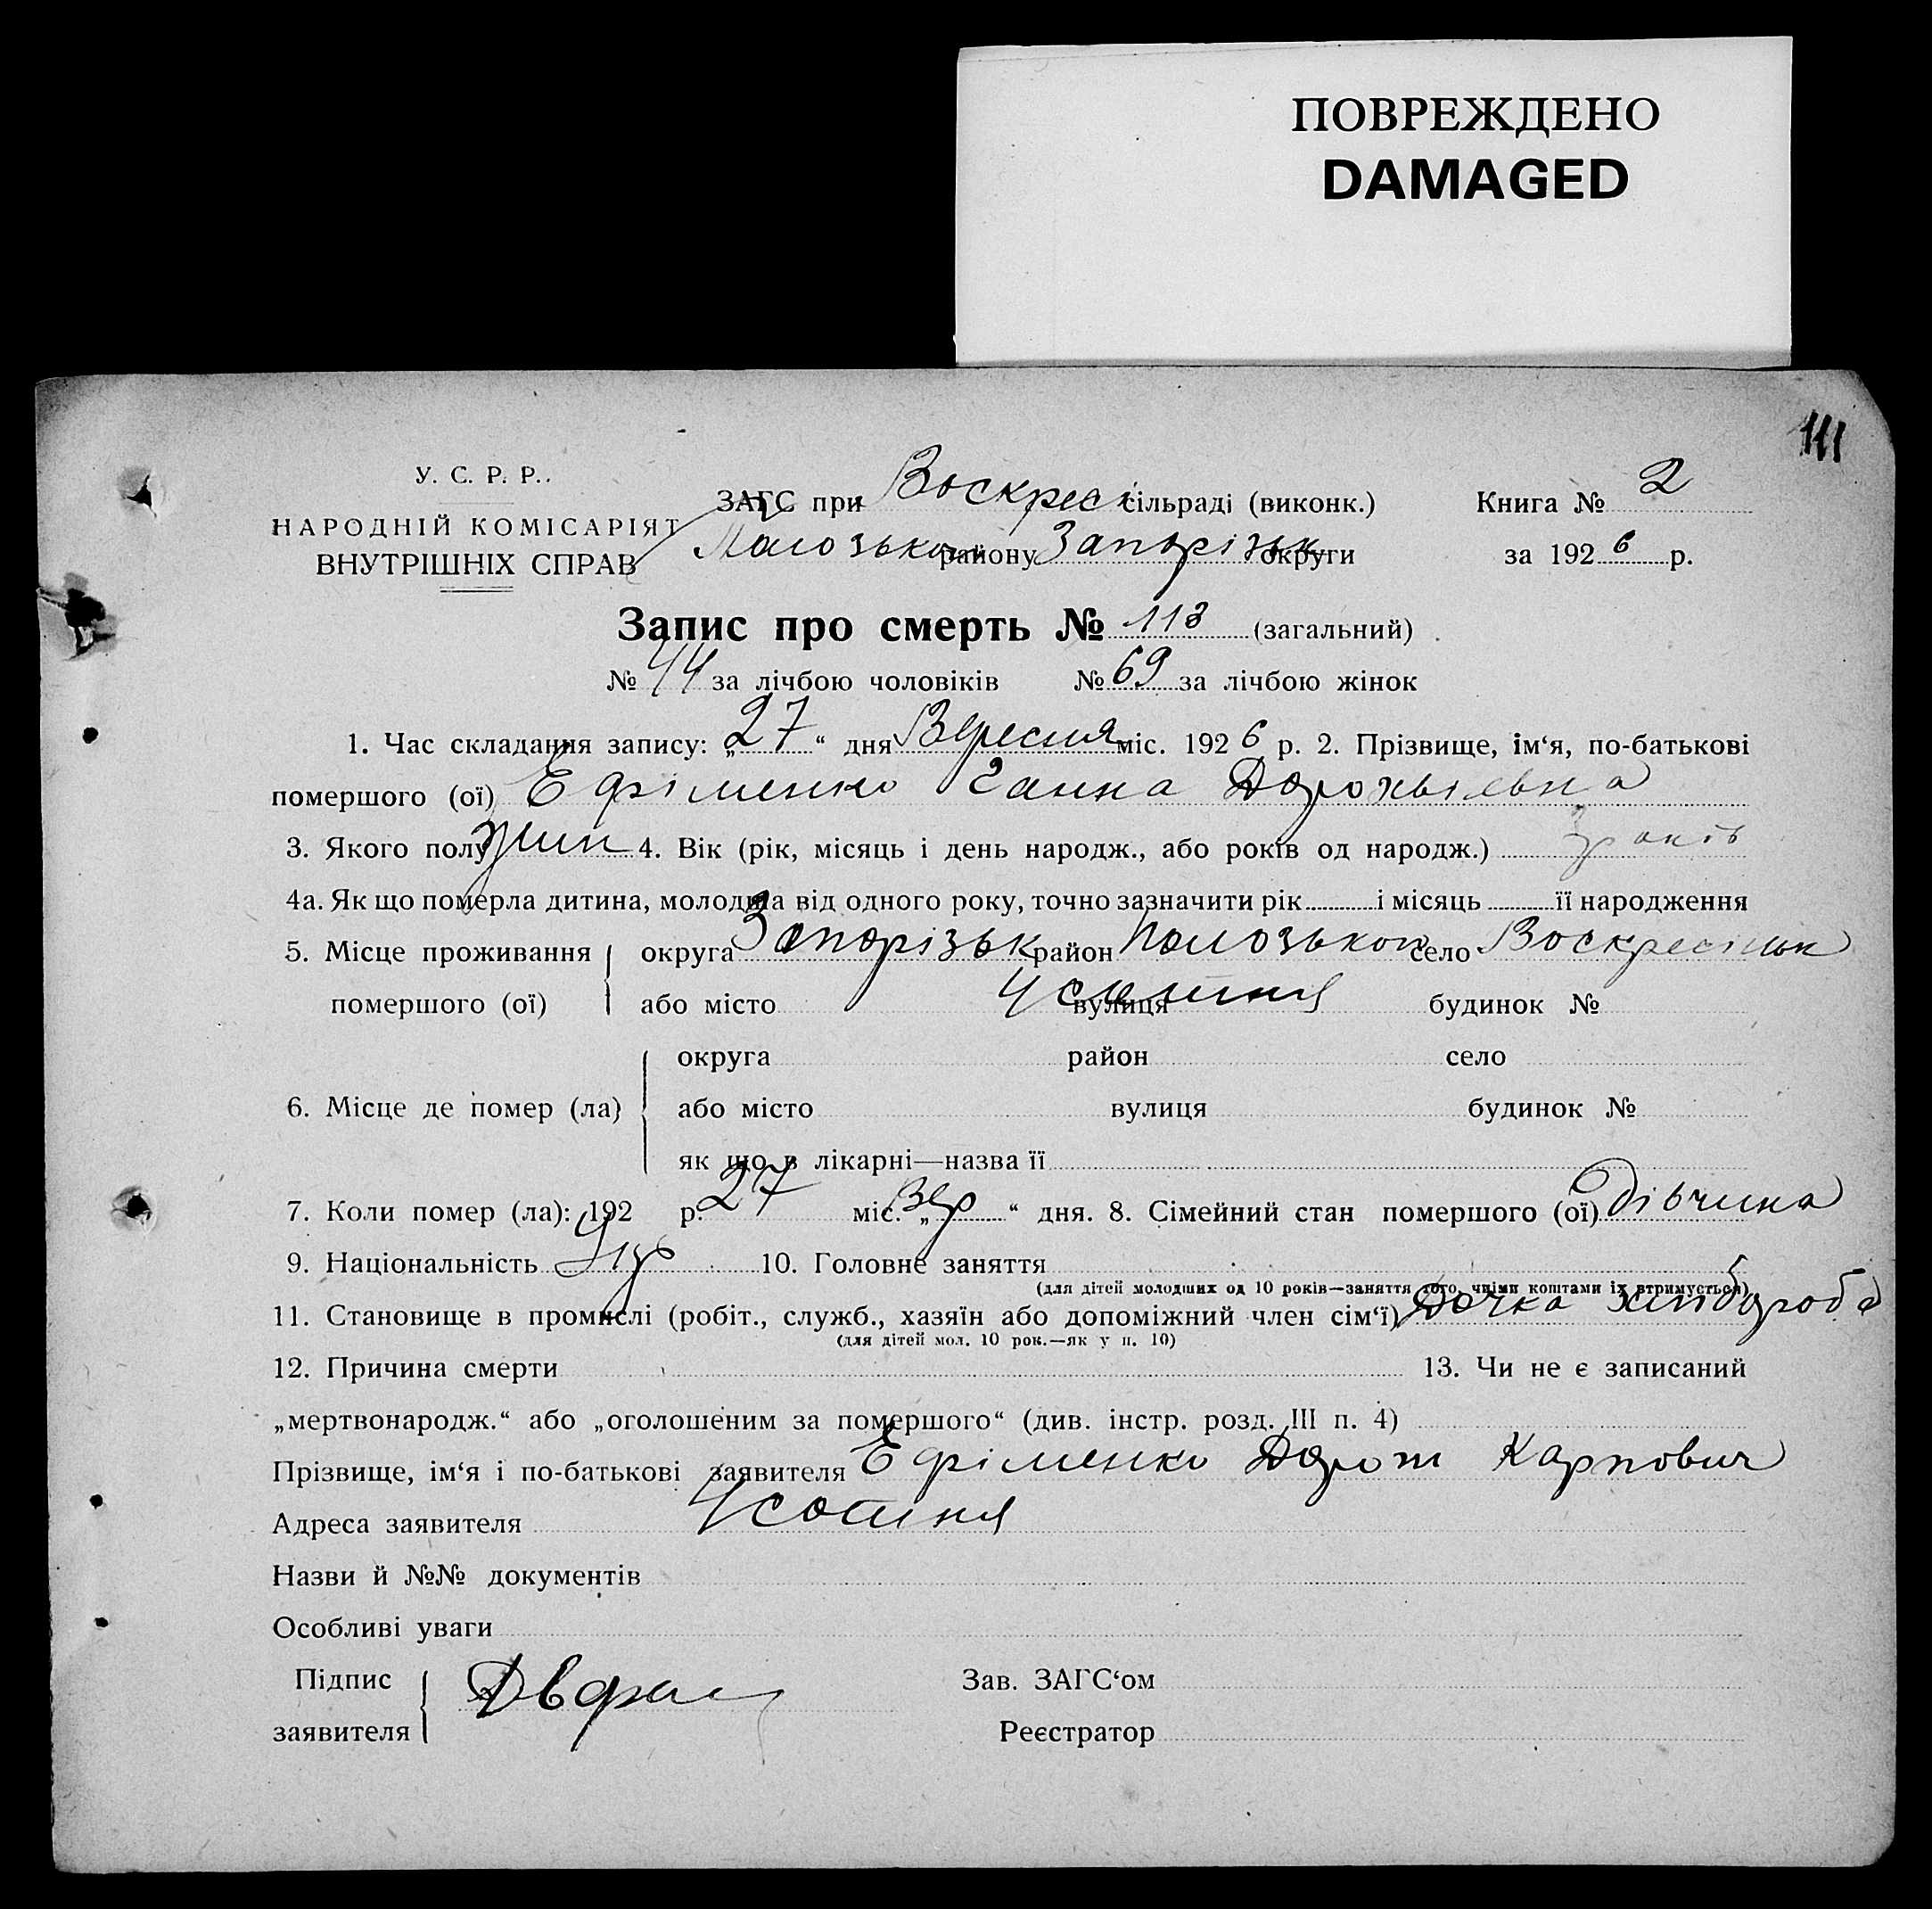 ПОВРЕЖДЕНО
DAMAGED
111
У. С. Р. Р.
НАРОДНІЙ КОМІСАРІЯТ
ВНУТРІШНІХ СПРАВ
ЗАГС при Воскрес сільраді (виконк.) Книга № 2
району Запорізьк округи за 1926 р.
Запис про смерть № 113 (загальний)
№ 44 за лічбою чоловіків № 69 за лічбою жінок
1. Час складання запису: „27“ дня Вересня міс. 1926 р. 2. Прізвище, ім‘я, по-батькові
помершого (ої) Ефіменко Ганна
3. Якого полу жін 4. Вік (рік, місяць і день народж., або років од народж.) 3 років
4а. Як що померла дитина, молодша від одного року, точно зазначити рік і місяць її народження
5. Місце проживання округа Запорізьк район село
помершого (ої) або місто вулиця будинок №
округа район село
6. Місце де помер (ла) або місто вулиця будинок №
як що в лікарні—назва її
7. Коли помер (ла): 192 р. 27 міс. „Вер“ дня. 8. Сімейний стан помершого (ої) дівчина
9. Національність Укр 10. Головне заняття
(для дітей молодших од 10 років—заняття того, чиїми коштами їх втримується)
11. Становище в промислі (робіт., служб., хазяїн або допоміжний член сім‘ї) Дочка хлібороба
(для дітей мол. 10 рок.—як у п. 10)
12. Причина смерти 13. Чи не є записаний
„мертвонародж.“ або „оголошеним за помершого“ (див. інстр. розд. III п. 4)
Прізвище, ім‘я і по-батькові заявителя Ефіменко Карпович
Адреса заявителя
Назви й №№ документів
Особливі уваги
Підпис Зав. ЗАГС‘ом
заявителя Реєстратор